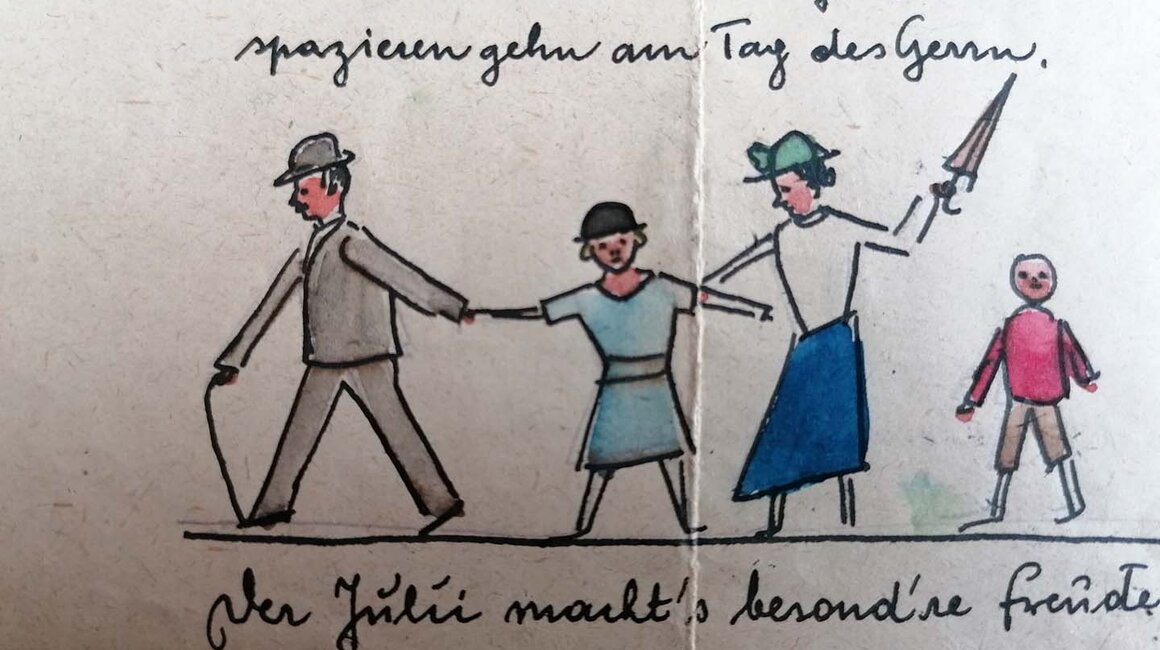 spazieren gehn am Tag des Herrn.
Der Juli macht's besond're Freude